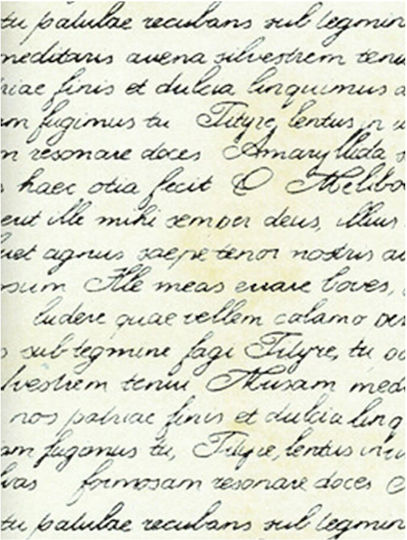 tu patulae recubans sub tegmin
meditaris avena silvestrem tenu
riae finis et dulcia linquimus a
am fugimus tu Tityre, lentus in u
m resonare doces Amaryllida s
s haec otia fecit O Melibo
erit ille mihi semper deus, illius
uet agnus saepe tenor nostris au
psum Ille meas errare boves,
ludere quae vellem calamo per
s sub tegmine fagi Tityre, tu
lvestrem tenui Musam medi
nos patriae finis et dulcia linq
am fugamus tu, Tityre, lentus in
lvas formosam resonare doces
tu patulae recubans sub tegmin